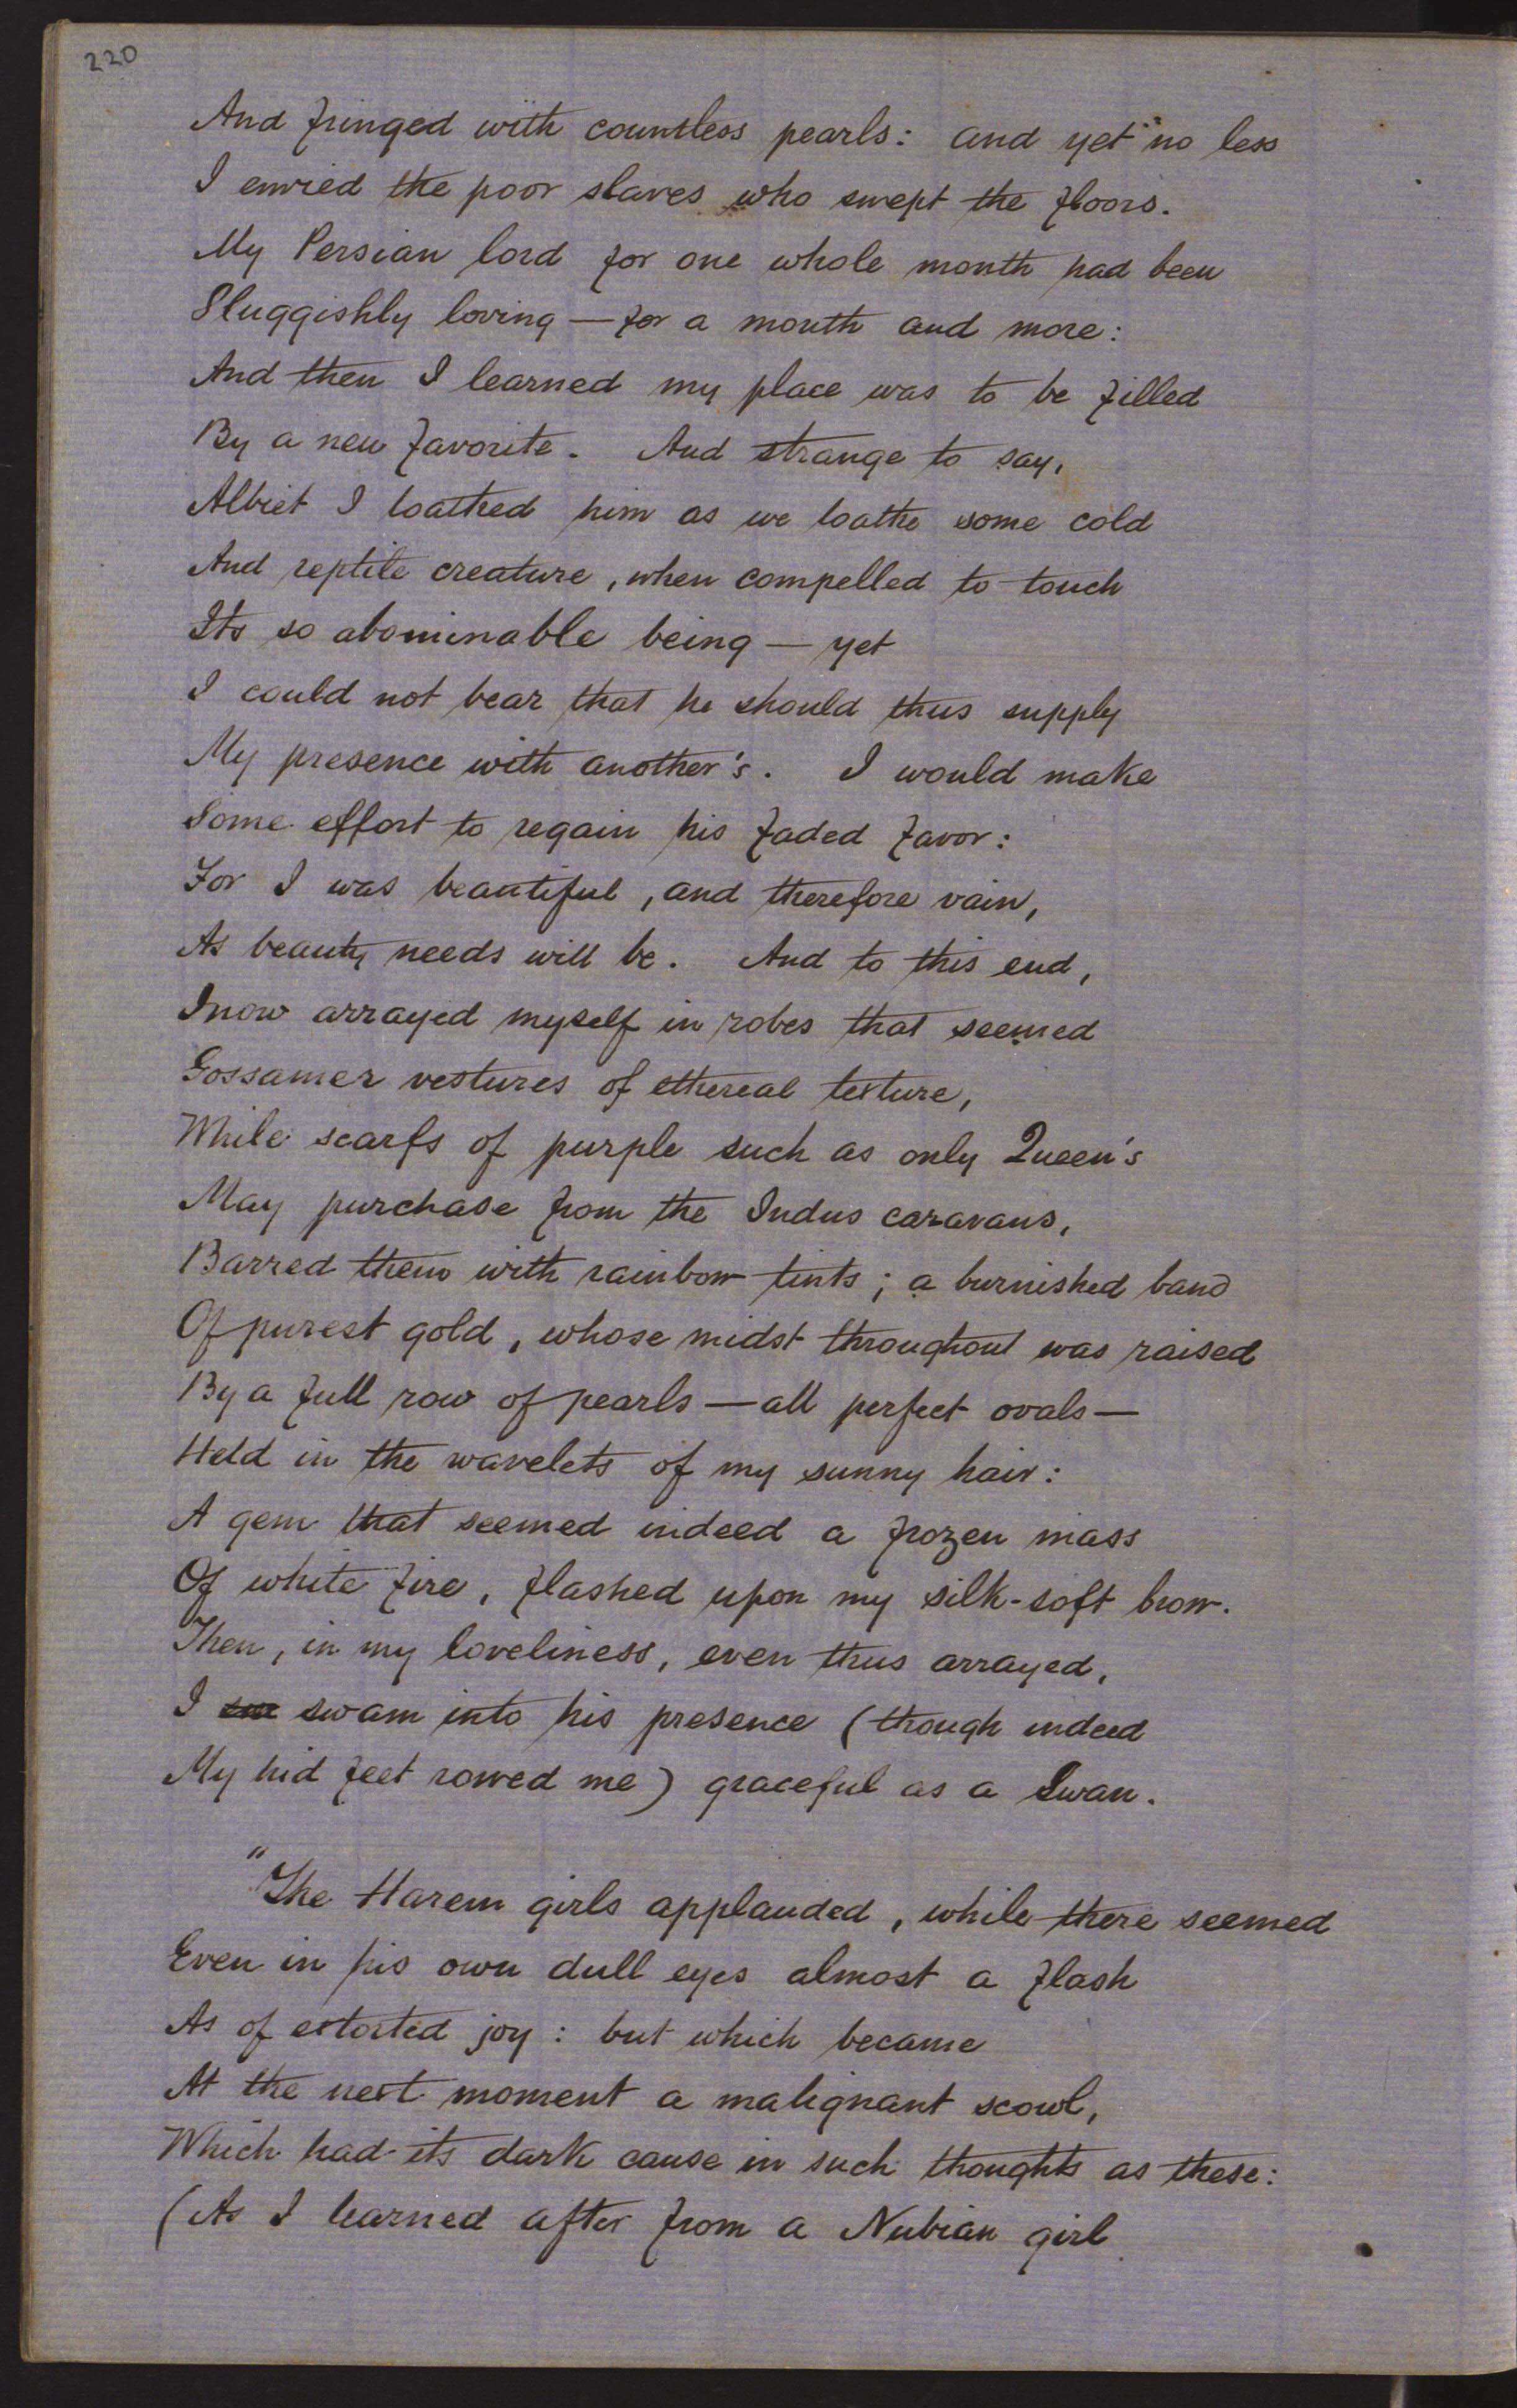 220
And fringed with countless pearls: and yet no less
I envied the poor slaves who swept the floors.
My Persian lord for one whole month had been
Sluggishly loving — for a month and more:
And then I learned my place was to be filled
By a new favorite. And strange to say,
Albiet I loathed him as we loathe some cold
And reptile creature, when compelled to touch
Its so abominable being — yet
I could not bear that he should thus supply
My presence with another's. I would make
Some effort to regain his faded favor:
For I was beautiful, and therefore vain,
As beauty needs will be. And to this end,
I now arrayed myself in robes that seemed
Gossamer vestures of ethereal texture,
While scarfs of purple such as only Queen's
May purchase from the Indus caravans,
Barred them with rainbow tints; a burnished band
Of purest gold, whose midst throughout was raised
By a full row of pearls — all perfect ovals —
Held in the wavelets of my sunny hair:
A gem that seemed indeed a frozen mass
Of white fire, flashed upon my silk-soft brow.
Then, in my loveliness, even thus arrayed,
I swam into his presence (though indeed
My hid feet rowed me) graceful as a Swan.
"The Harem girls applauded, while there seemed
Even in his own dull eyes almost a flash
As of extorted joy: but which became
At the next moment a malignant scowl,
Which had its dark cause in such thoughts as these:
(As I learned after from a Nubian girl